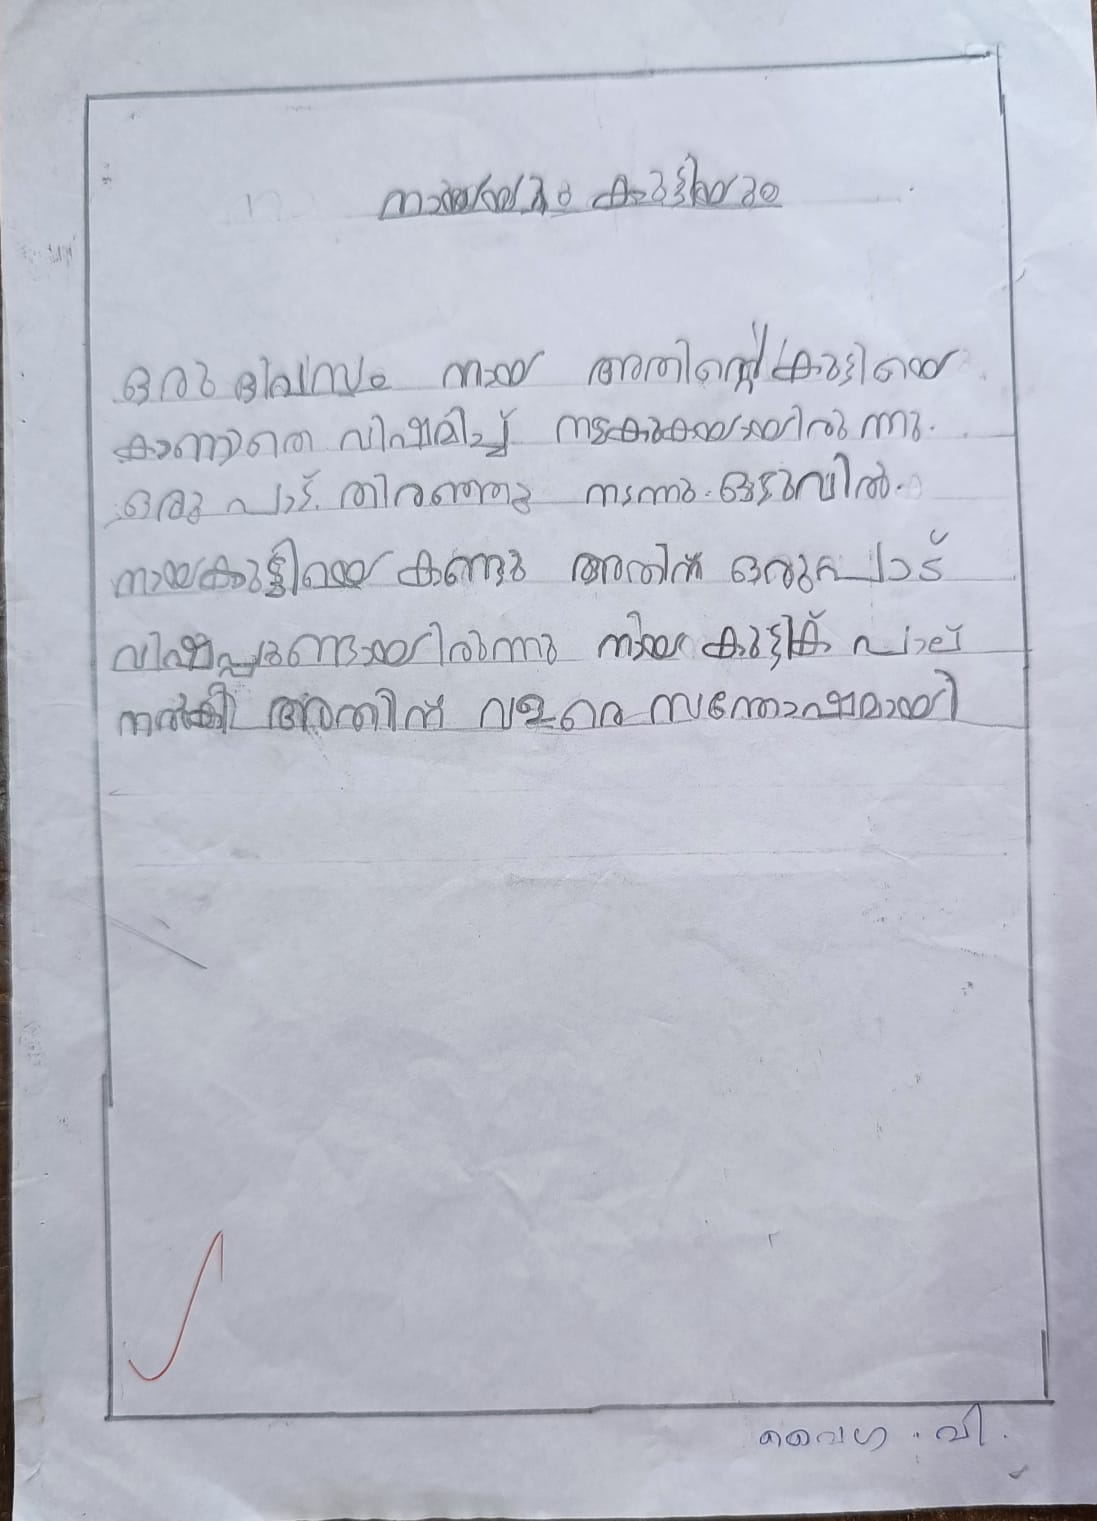 നായയും കുട്ടിയും
ഒരു ദിവസം നായ അതിന്റെ കുട്ടിയെ
കാണാതെ വിഷമിച്ച് നടക്കുകയായിരുന്നു.
ഒരു പാട് തിരഞ്ഞു നടന്നു. ഒടുവിൽ.
നായകുട്ടിയെ കണ്ടു അതിന് ഒരുപാട്
വിഷപ്പുണ്ടായിരുന്നു നായ കുട്ടിക് പാല്
നൽകി അതിന് വളരെ സന്തോഷമായി
വൈഗ . വി.